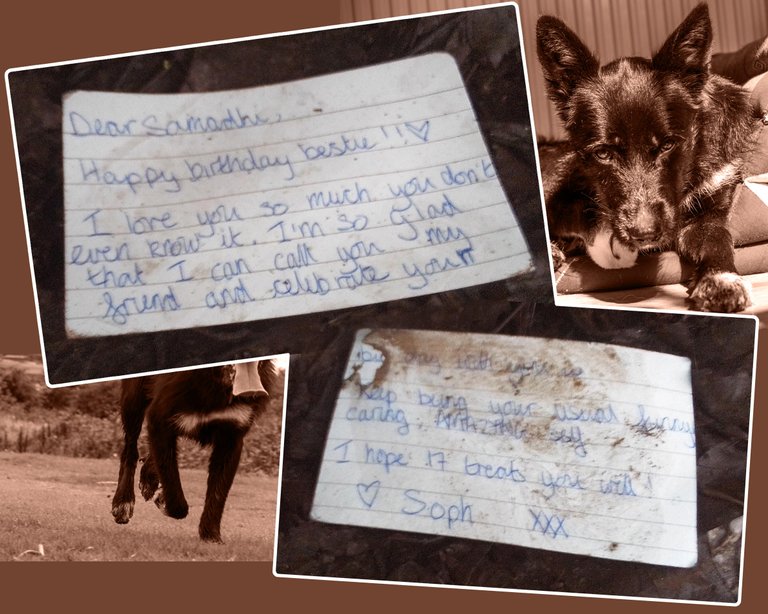 Dear Samadhi,
Happy birthday bestie!! ♡
I love you so much you don't
even know it. I'm so glad
that I can call you my
friend and celebrate your
day with you
keep being your usual funny
caring, self
I hope 17 treats you well!
♡ Soph xxx